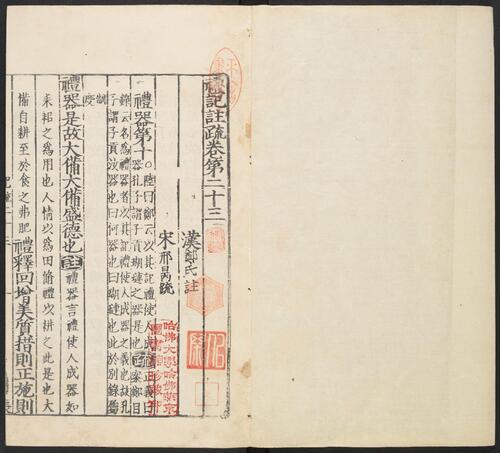 禮記註疏卷第二十三
漢鄭氏註
宋邢昺疏
禮器第十
陸曰鄭云以其記禮使人成
器孔子謂子貢瑚璉之器是也
正義曰
案鄭目
錄云名為禮器者以其記禮使人成器之義也故孔
子謂子貢汝器也曰何器也曰瑚璉也此於別錄屬
制度
禮器是故大備大備盛德也
註
禮器言禮使人成器如
耒耜之為用也人情以為田脩禮以耕之此是也大
備自耕至於食之弗肥
禮釋回增美質措則正施則
哈佛大學哈佛燕京
圖書館珍藏印